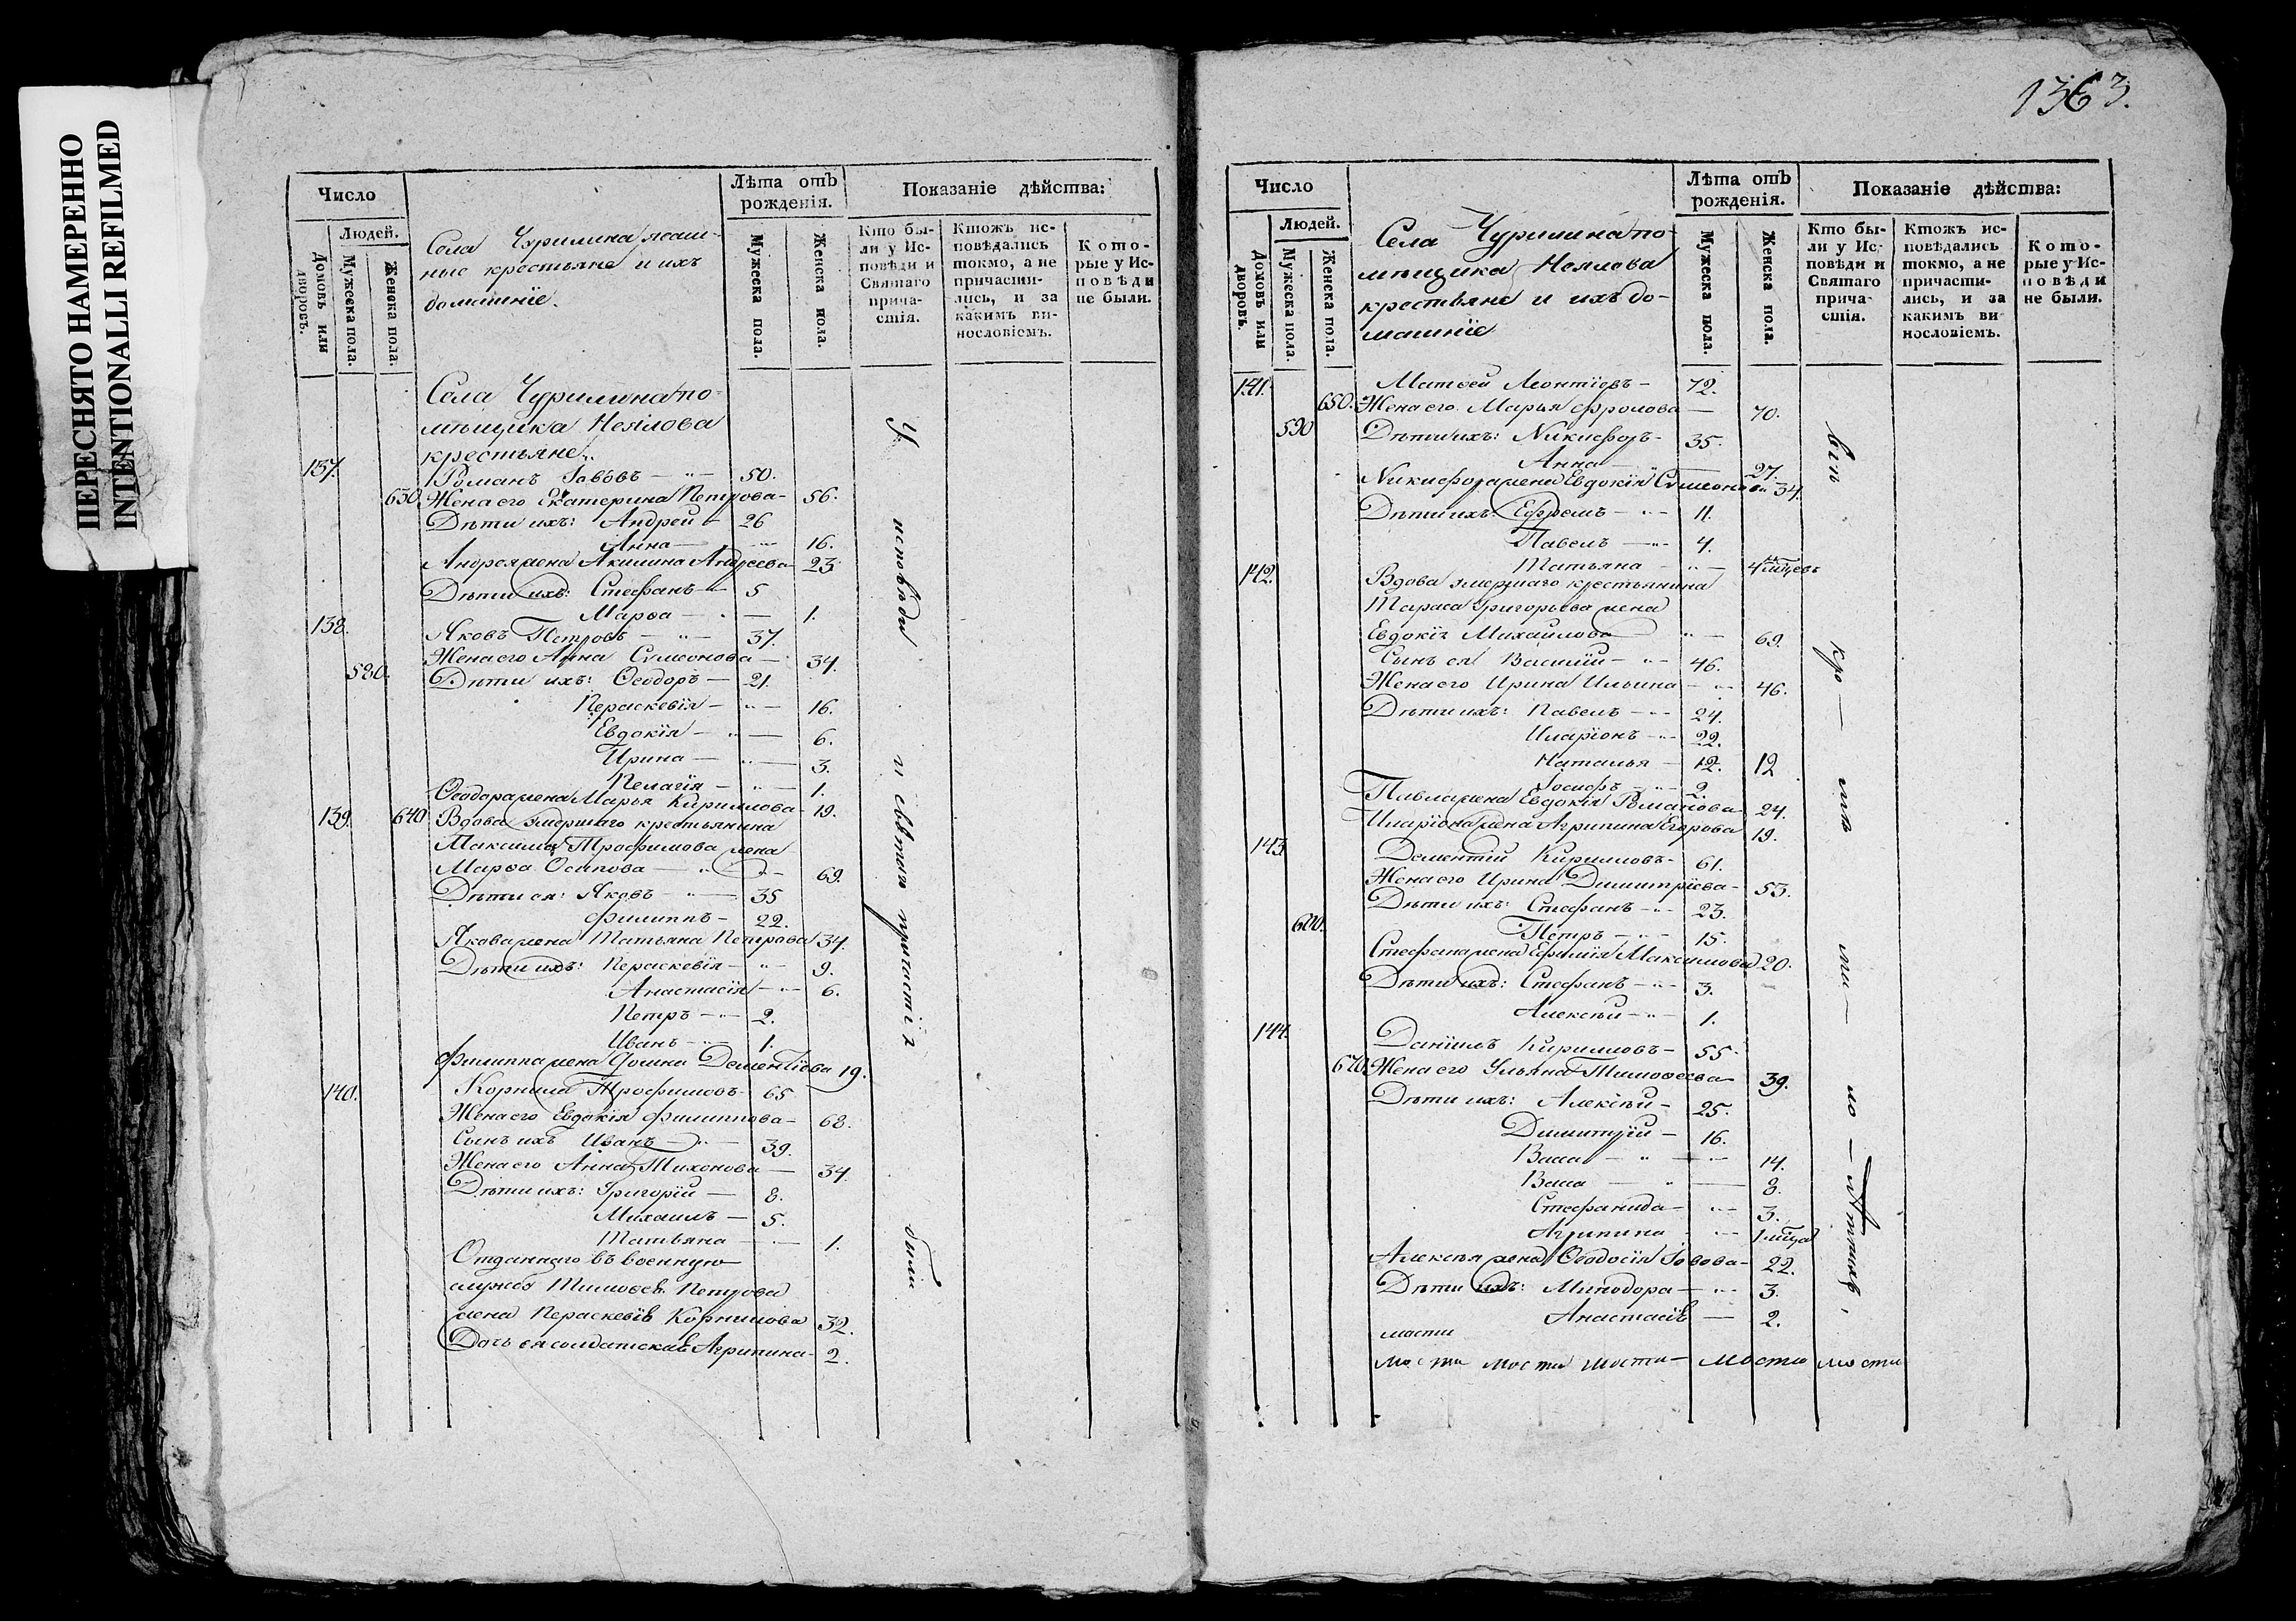 ПЕРЕСНЯТО НАМЕРЕННО
INTENTIONALLI REFILMED
Число
Лѣта отъ рожденія.
Показаніе дѣйства:
Домовъ или дворовъ.
Людей.
Мужеска пола.
Женска пола.
Села Чурилина ясаш-
ные крестьяне и ихъ
домашніе.
Мужеска пола.
Женска пола.
Кто бы-
ли у Ис-
повѣди и
Святаго
прича-
стія.
Ктожъ ис-
повѣдались
токмо, а не
причасти-
лись, и за
какимъ ви-
нословіемъ.
Кото-
рые у Ис-
повѣди
не были.
Села Чурилина по-
мѣщика Неялова
крестьяне
137. Романъ Іововъ 50.
630. Жена его Екатерина Петрова 56.
Дѣти ихъ: Андрей 26
Анна 16.
Андрея жена Акилина Андреева 23
Дѣти ихъ: Стефанъ 5
Марѳа 1.
138. Яковъ Петровъ 37.
Жена его Анна Сумеонова 34.
580. Дѣти ихъ: Ѳеодоръ 21.
Пераскевія 16.
Евдокія 6.
Ирина 3.
Пелагія 1.
Ѳеодора жена Марья Кириллова 19.
139. 640 Вдова умершаго крестьянина
Максима Трофимова жена
Марѳа Осипова 69.
Дѣти ея: Яковъ 35
Филиппъ 22.
Якова жена Татьяна Петрова 34.
Дѣти ихъ: Пераскевія 9.
Анастасія 6.
Петръ 2.
Иванъ 1.
Филиппа жена Ѳомина Дементіева 19.
140. Корнилій Трофимовъ 65
Жена его Евдокія Филиппова 68.
Сынъ ихъ Иванъ 39.
Жена его Анна Тихонова 34.
Дѣти ихъ: Григорій 8.
Михаилъ 5.
Татьяна 1.
Отданнаго въ военную
службу Тимоѳея Петрова
жена Пераскевія Корнилова 32.
Дочь ея солдатская Агрипина 2.
У исповѣди и святаго причастія были
1363.
Число
Лѣта отъ рожденія.
Показаніе дѣйства:
Домовъ или дворовъ.
Людей.
Мужеска пола.
Женска пола.
Села Чурилина по-
мѣщика Неялова
крестьяне и ихъ до-
машніе
Мужеска пола.
Женска пола.
Кто бы-
ли у Ис-
повѣди и
Святаго
прича-
стія.
Ктожъ ис-
повѣдались
токмо, а не
причасти-
лись, и за
какимъ ви-
нословіемъ.
Кото-
рые у Ис-
повѣди
не были.
141. Матѳей Леонтіевъ 72.
650. Жена его Марья Фролова 70.
590 Дѣти ихъ: Никифоръ 35.
Анна 27.
Никифора жена Евдокія Сумеонова 34.
Дѣти ихъ: Ефремъ 11.
Павелъ 4.
Татьяна 4 мѣсцевъ
142. Вдова умершаго крестьянина
Тараса Григорьева жена
Евдокія Михайлова 69.
Сынъ ея Василій 46.
Жена его Ирина Ильина 46.
Дѣти ихъ: Павелъ 24.
Иларіонъ 22.
Наталья 12. 12
Іосифъ 2.
Павла жена Евдокія Романова 24.
Иларіона жена Агрипина Егорова 19.
143. Дементій Кирилловъ 61.
Жена его Ирина Димитріева 53.
Дѣти ихъ: Стефанъ 23.
600. Петръ 15.
Стефана жена Ефимія Максимова 20.
Дѣти ихъ: Стефанъ 3.
Алексѣй 1.
144. Даніилъ Кирилловъ 55.
670. Жена его Ульяна Тимоѳеева 39.
Дѣти ихъ: Алексѣй 25.
Димитрій 16.
Васса 14.
Васса 8.
Стефанида 3.
Агрипина 1 мѣсца
Алексѣя жена Ѳеодосія Іовова 22.
Дѣти ихъ: Минодора 3.
Анастасія 2.